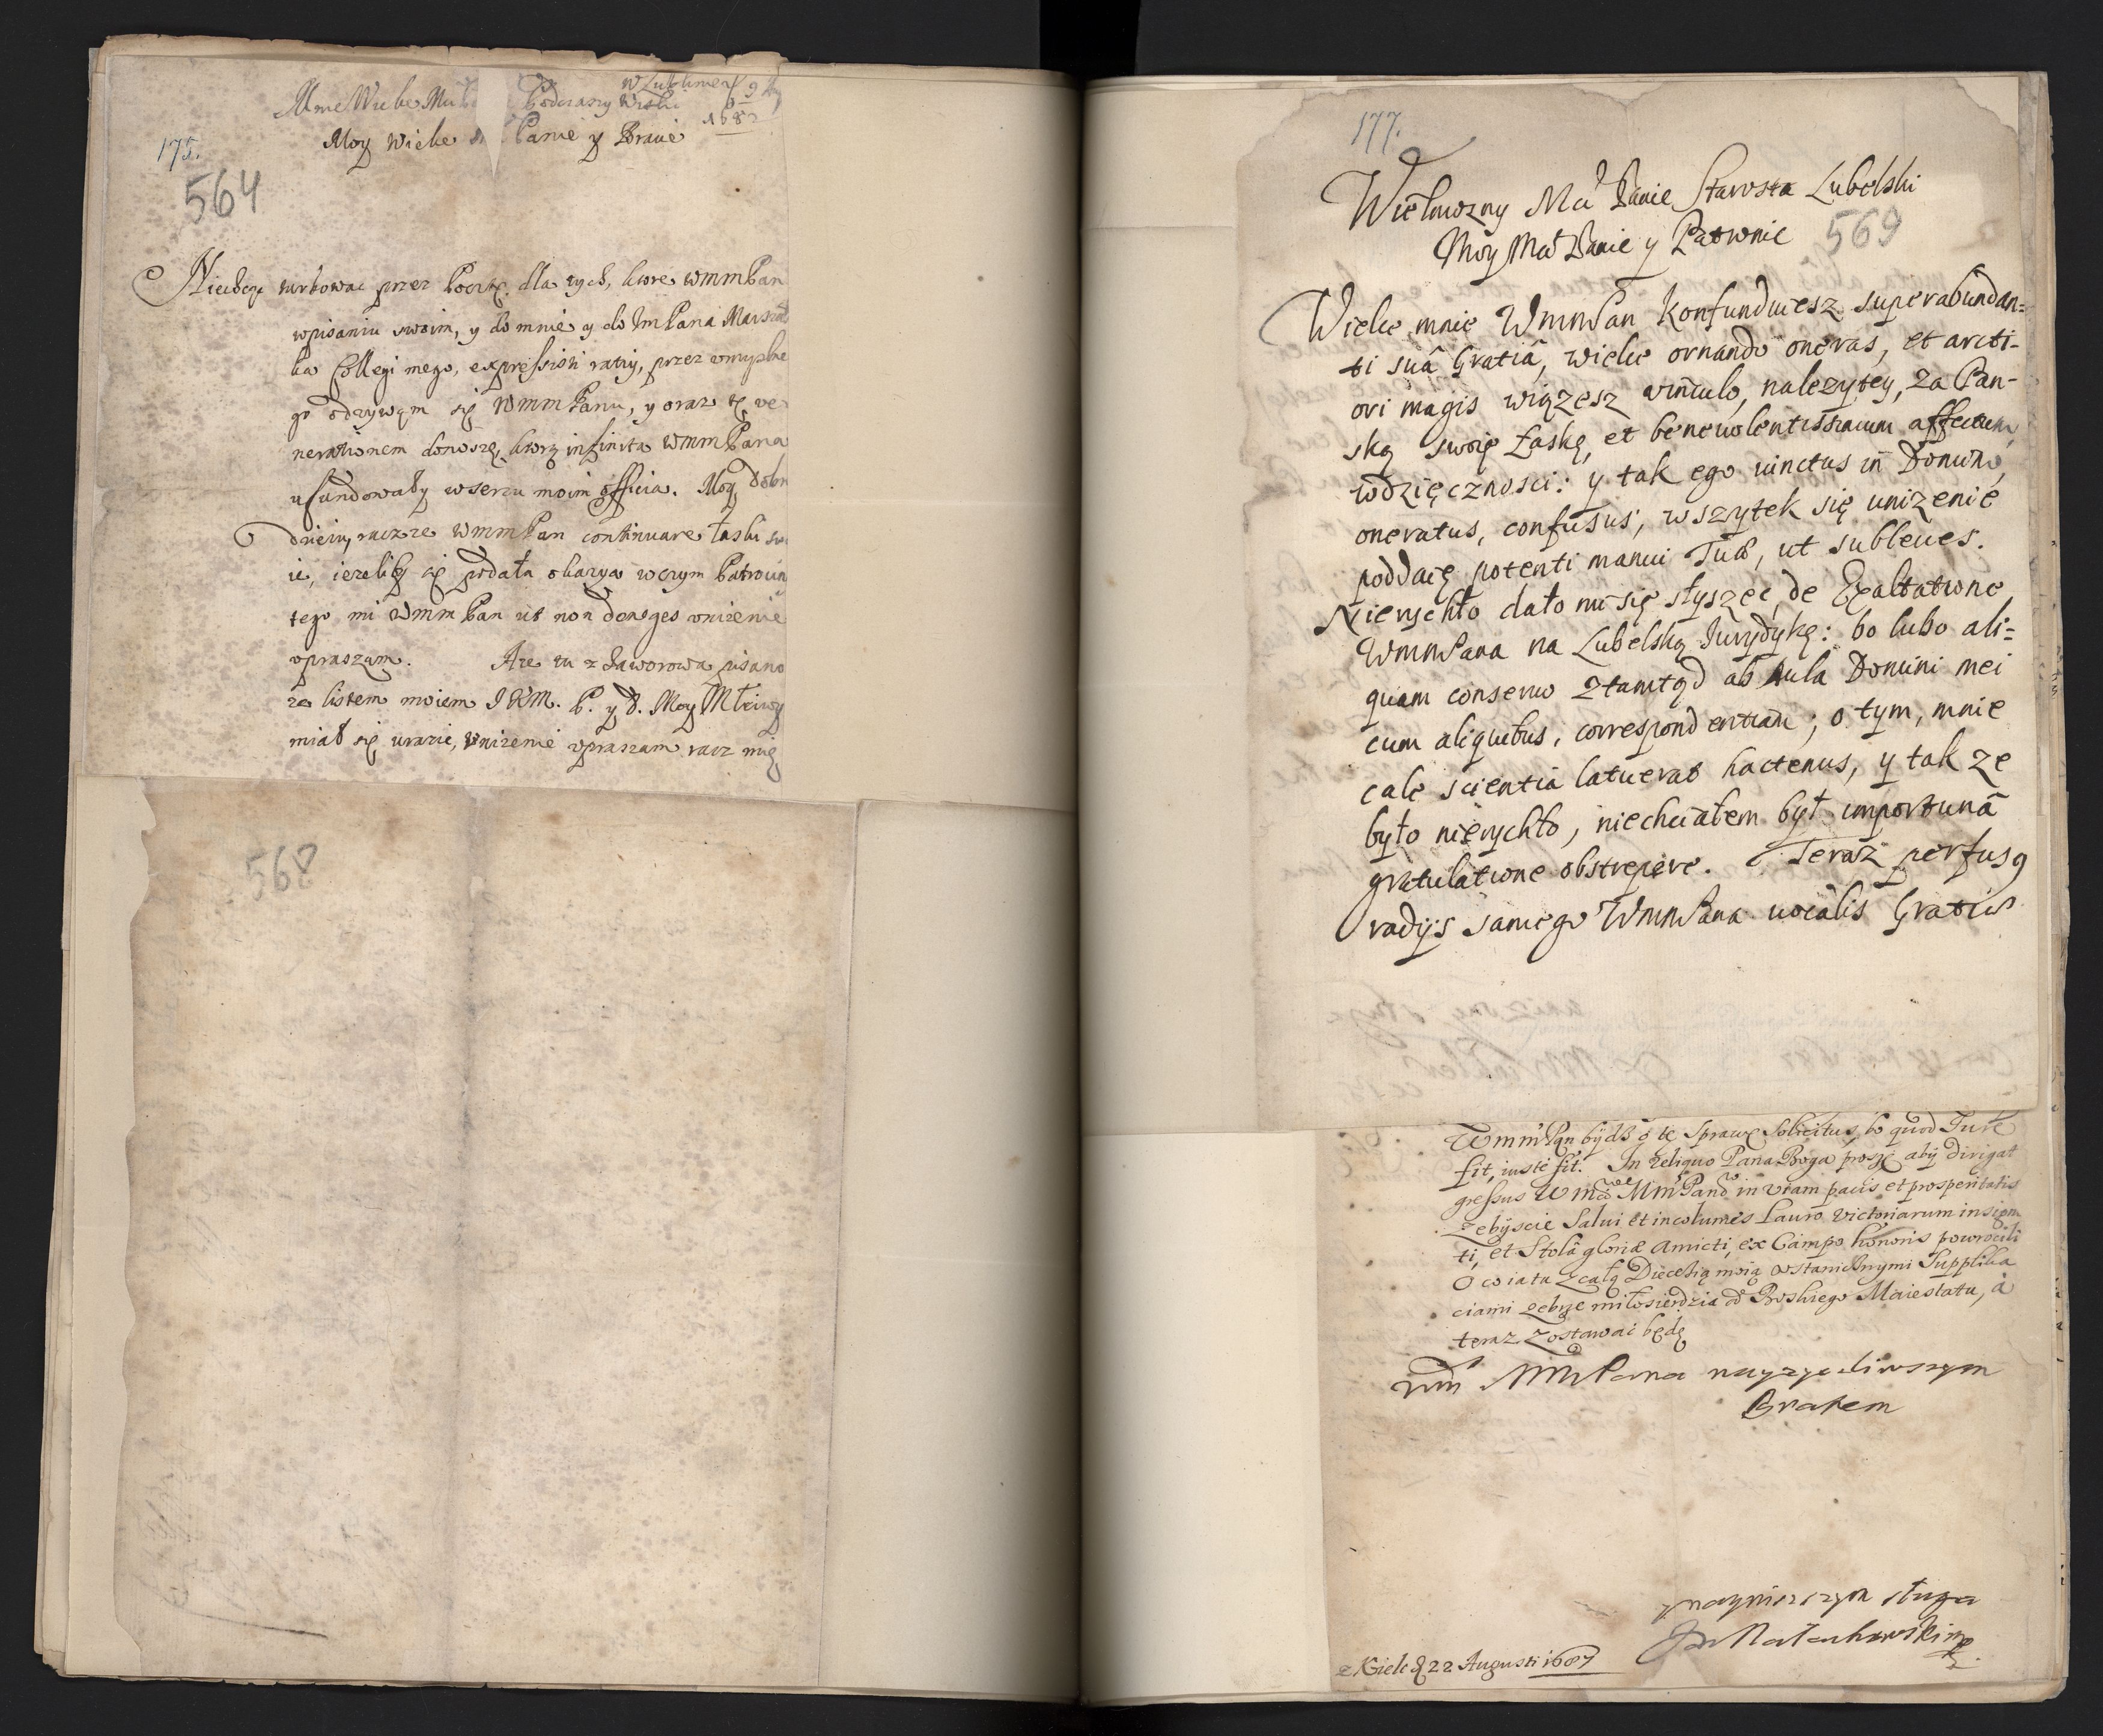 w Lublinie 9
Mnie Wielce Podczaszy
1682
Moy Wielce Panie y Bracie
175.
564
Niechcąc turbować przez Pocztę dla tych, ktore WMMPan
w pisaniu swoim, y do mnie y do ImPana Marszał
ka Collegi mego, expressisti racty, przez umyslne
go odzywam się WMMPanu, y oraz tę ve
nerationem donoszę, ktorą infinita WMMPana
ufundowały w sercu moim officia. Moy Dobro
dzieiu, racz ze WMMPan continuare łaski sw
ie, ieżeliby się podała okazya w czym Patrocin
tego mi WMMPan ut non deneges uniżenie
upraszam. Że tu z Jaworowa pisano
ze listem moiem JKM. P. y D. Moy Młciwy
miał się urazić, uniżenie upraszam racz mię
568
177.
Wielmozny Mći Panie Starosta Lubelski
Moy Mći Panie y Patronie
569
Wielce mnie WmmPan konfunduiesz superabundan=
ti suâ Gratiâ, wielce ornando oneras, et arcti-
ori magis wiązesz vinculo, nalezytey, za Pan-
ską swoię Łaskę, et beneuolentissimum affectum,
wdzięcznosci: y tak ego uinctus in Domino,
oneratus, confusus, wszytek się unizenie
poddaię potenti manui Tuae, ut subleues.
Nierychło dało mi się słyszeć, de Exaltatione
WmmPana na Lubelską Jurydykę: bo lubo ali=
quam conseruo ztamtąd ab Aula Domini mei
cum aliquibus, correspondentiam; o tym, mnie
cale scientia latuerat hactenus, y tak ze
było nierychło, niechciałem być importunâ
gratulatione obstrepere. Teraz perfusq
radijs samego WmmPana uocalis Gratiae
WmmPan bydź o tę Sprawę Solicitus, bo quod Jure
fit, iuste fit. In reliquo Pana Boga proszę aby dirigat
gressus WmćiwMmPanow in viam pacis et prosperitatis
zebyscie Salui et incolumes Lauro victoriarum insigni
ti, et Stolâ gloriae amicti, ex Campo honoris powrocili
O co ia tu z całą Diecezią moią ustawicznymi Supplika
ciami zebrzę miłosierdzia od Boskiego Maiestatu, á
teraz zostawać będę
Wm MMPana nayzyczliwszym
Bratem
y naynizszym sługą
Jan Małachowski
z Kielc d 22 Augusti 1687